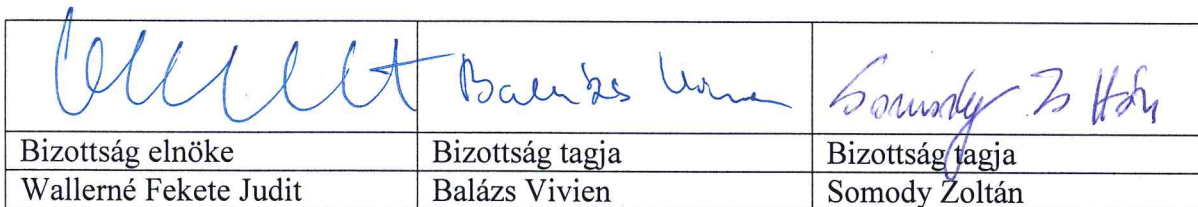 Balázs Vivien Somody Zoltán
Bizottság elnöke Bizottság tagja Bizottság tagja
Wallerné Fekete Judit Balázs Vivien Somody Zoltán